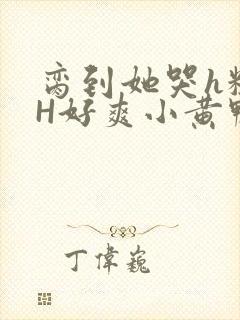 脔到她哭h
H好爽小黄
丁偉巍